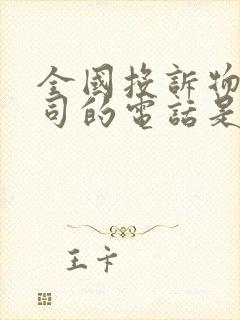 全國投訴物
司的電話是
王卡